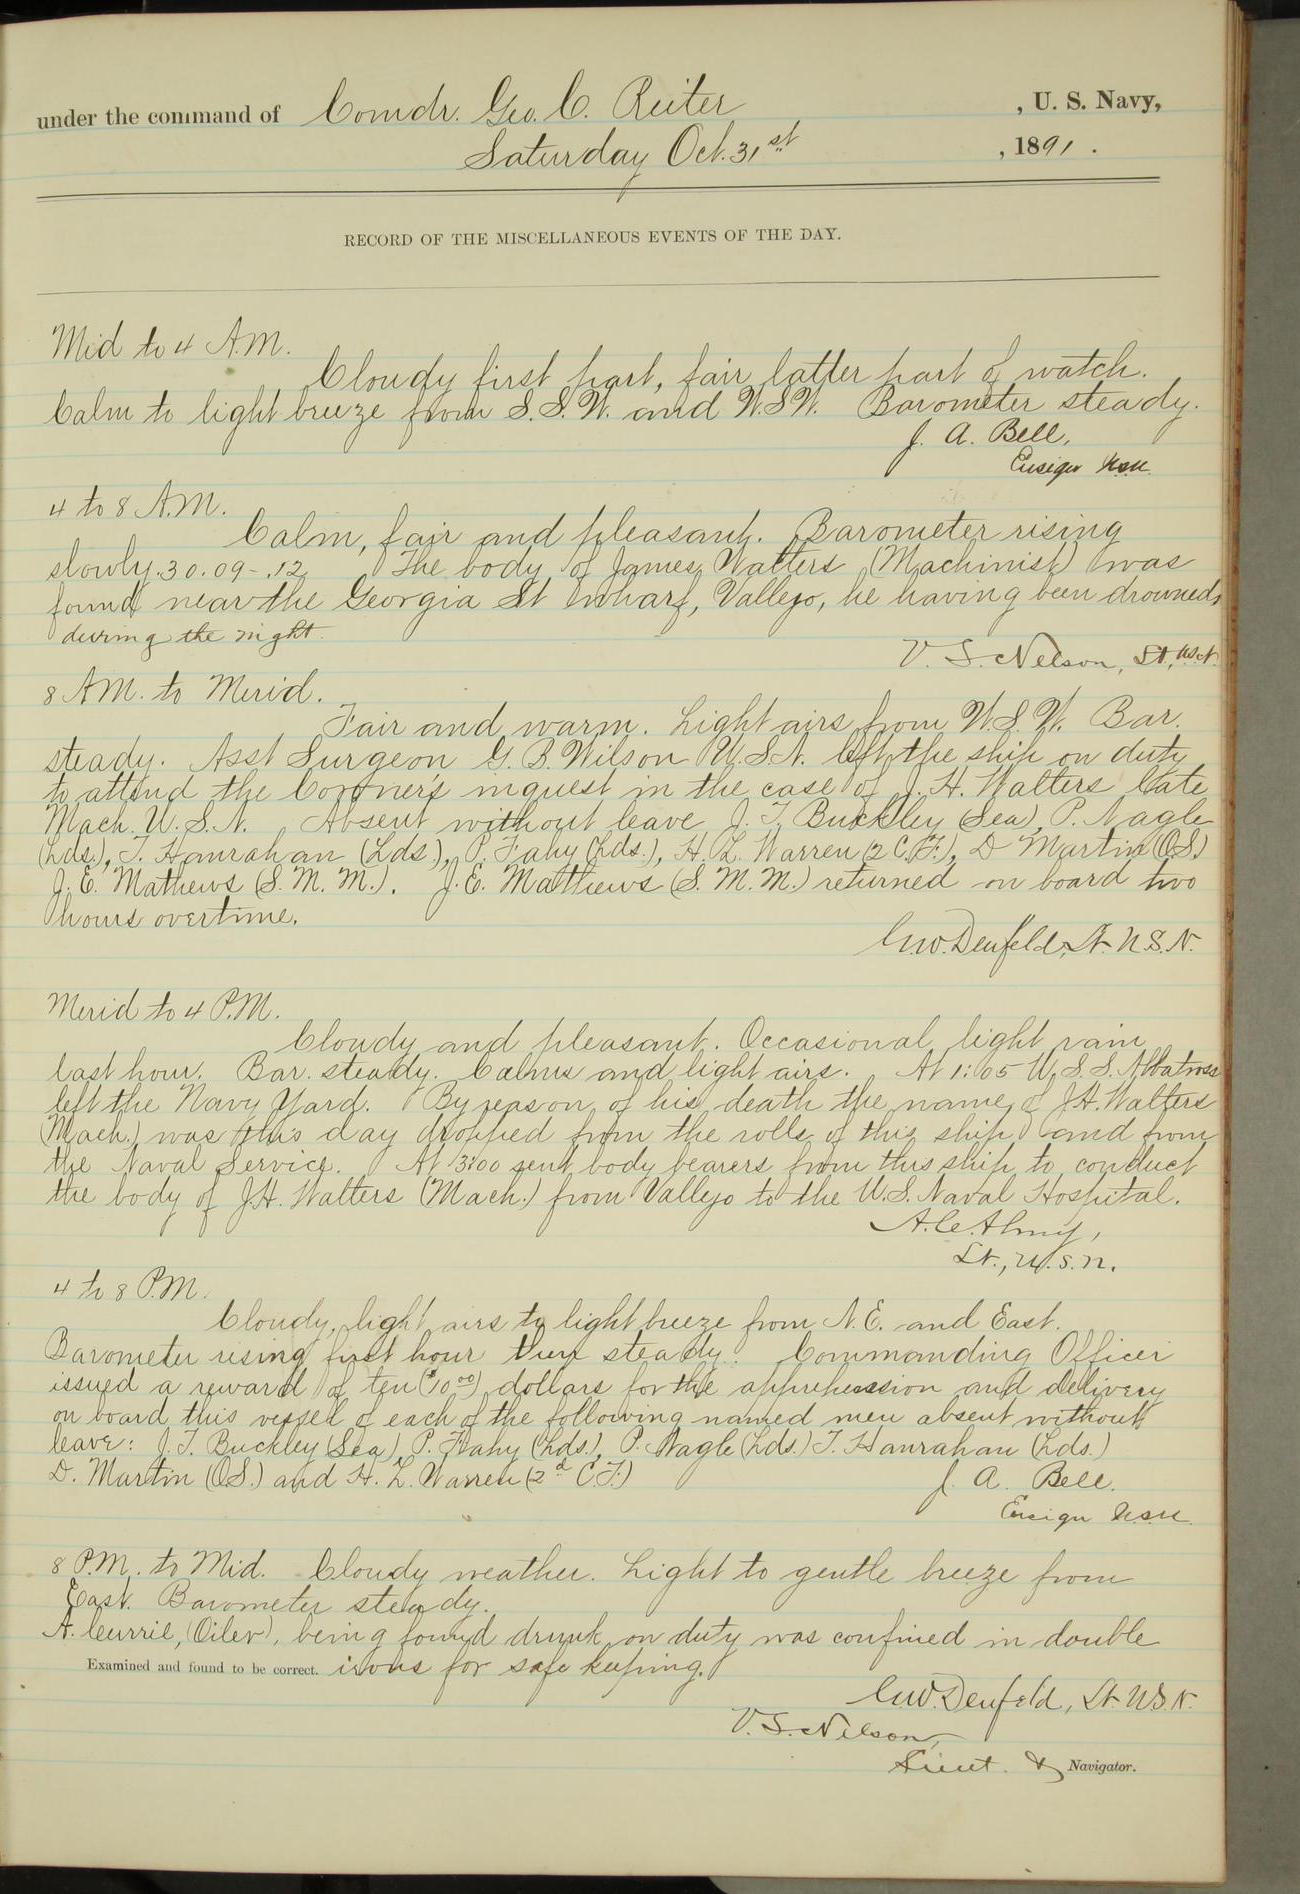 under the command of Comdr. Geo. C. Reiter , U. S. Navy,
Saturday Oct. 31st , 1891 .
RECORD OF THE MISCELLANEOUS EVENTS OF THE DAY.
Mid to 4 A.M.
Cloudy first part, fair latter part of watch.
Calm to light breeze from S.S.W. and W.S.W. Barometer steady.
J. A. Bell,
Ensign USN
4 to 8 A.M.
Calm, fair and pleasant. Barometer rising
slowly. 30.09-.12 The body of James Walters (Machinist) was
found near the Georgia St wharf, Vallejo, he having been drowned
during the night.
V. S. Nelson, Lt, USN.
8 AM. to Merid.
Fair and warm. Light airs from W.S.W. Bar.
steady. Asst Surgeon G. B. Wilson U.S.N. left the ship on duty
to attend the Coroner's inquest in the case of J. H. Walters late
Mach. U.S.N. Absent without leave J. T. Buckley (Sea), P. Nagle
(Lds.), T. Hanrahan (Lds), P. Fahy (Lds.), H. L. Warren (2 C.F.), D Martin (O.S.)
J. E. Mathews (S. M. M.). J. E. Matthews (S. M. M.) returned on board two
hours overtime.
C.W. Denfeld, Lt. U.S.N.
Merid to 4 P.M.
Cloudy and pleasant. Occasional light rain
last hour. Bar. steady. Calms and light airs. At 1:05 U.S.S. Albatross
left the Navy Yard. By reason of his death the name of J.H. Walters
(Mach.) was this day dropped from the rolls of this ship and from
the Naval Service. At 3:00 sent body bearers from this ship to conduct
the body of J.H. Walters (Mach.) from Vallejo to the U.S. Naval Hospital.
A. C. Almy,
Lt., U.S.N.
4 to 8 P.M.
Cloudy, light airs to light breeze from N.E. and East.
Barometer rising first hour then steady. Commanding Officer
issued a reward of ten ($10 00) dollars for the apprehension and delivery
on board this vessel of each of the following named men absent without
leave: J. T. Buckley (Sea), P. Fahy (Lds.), P. Nagle (Lds.) T. Hanrahan (Lds.)
D. Martin (O.S.) and H. L. Warren (2d C.F.)
J. A. Bell.
Ensign USN.
8 P.M. to Mid. Cloudy weather. Light to gentle breeze from
East. Barometer steady.
A. Currie, (Oiler), being found drunk on duty was confined in double
Examined and found to be correct. irons for safe keeping.
C.W. Denfeld, Lt. U.S.N.
V. S. Nelson,
Lieut. & Navigator.